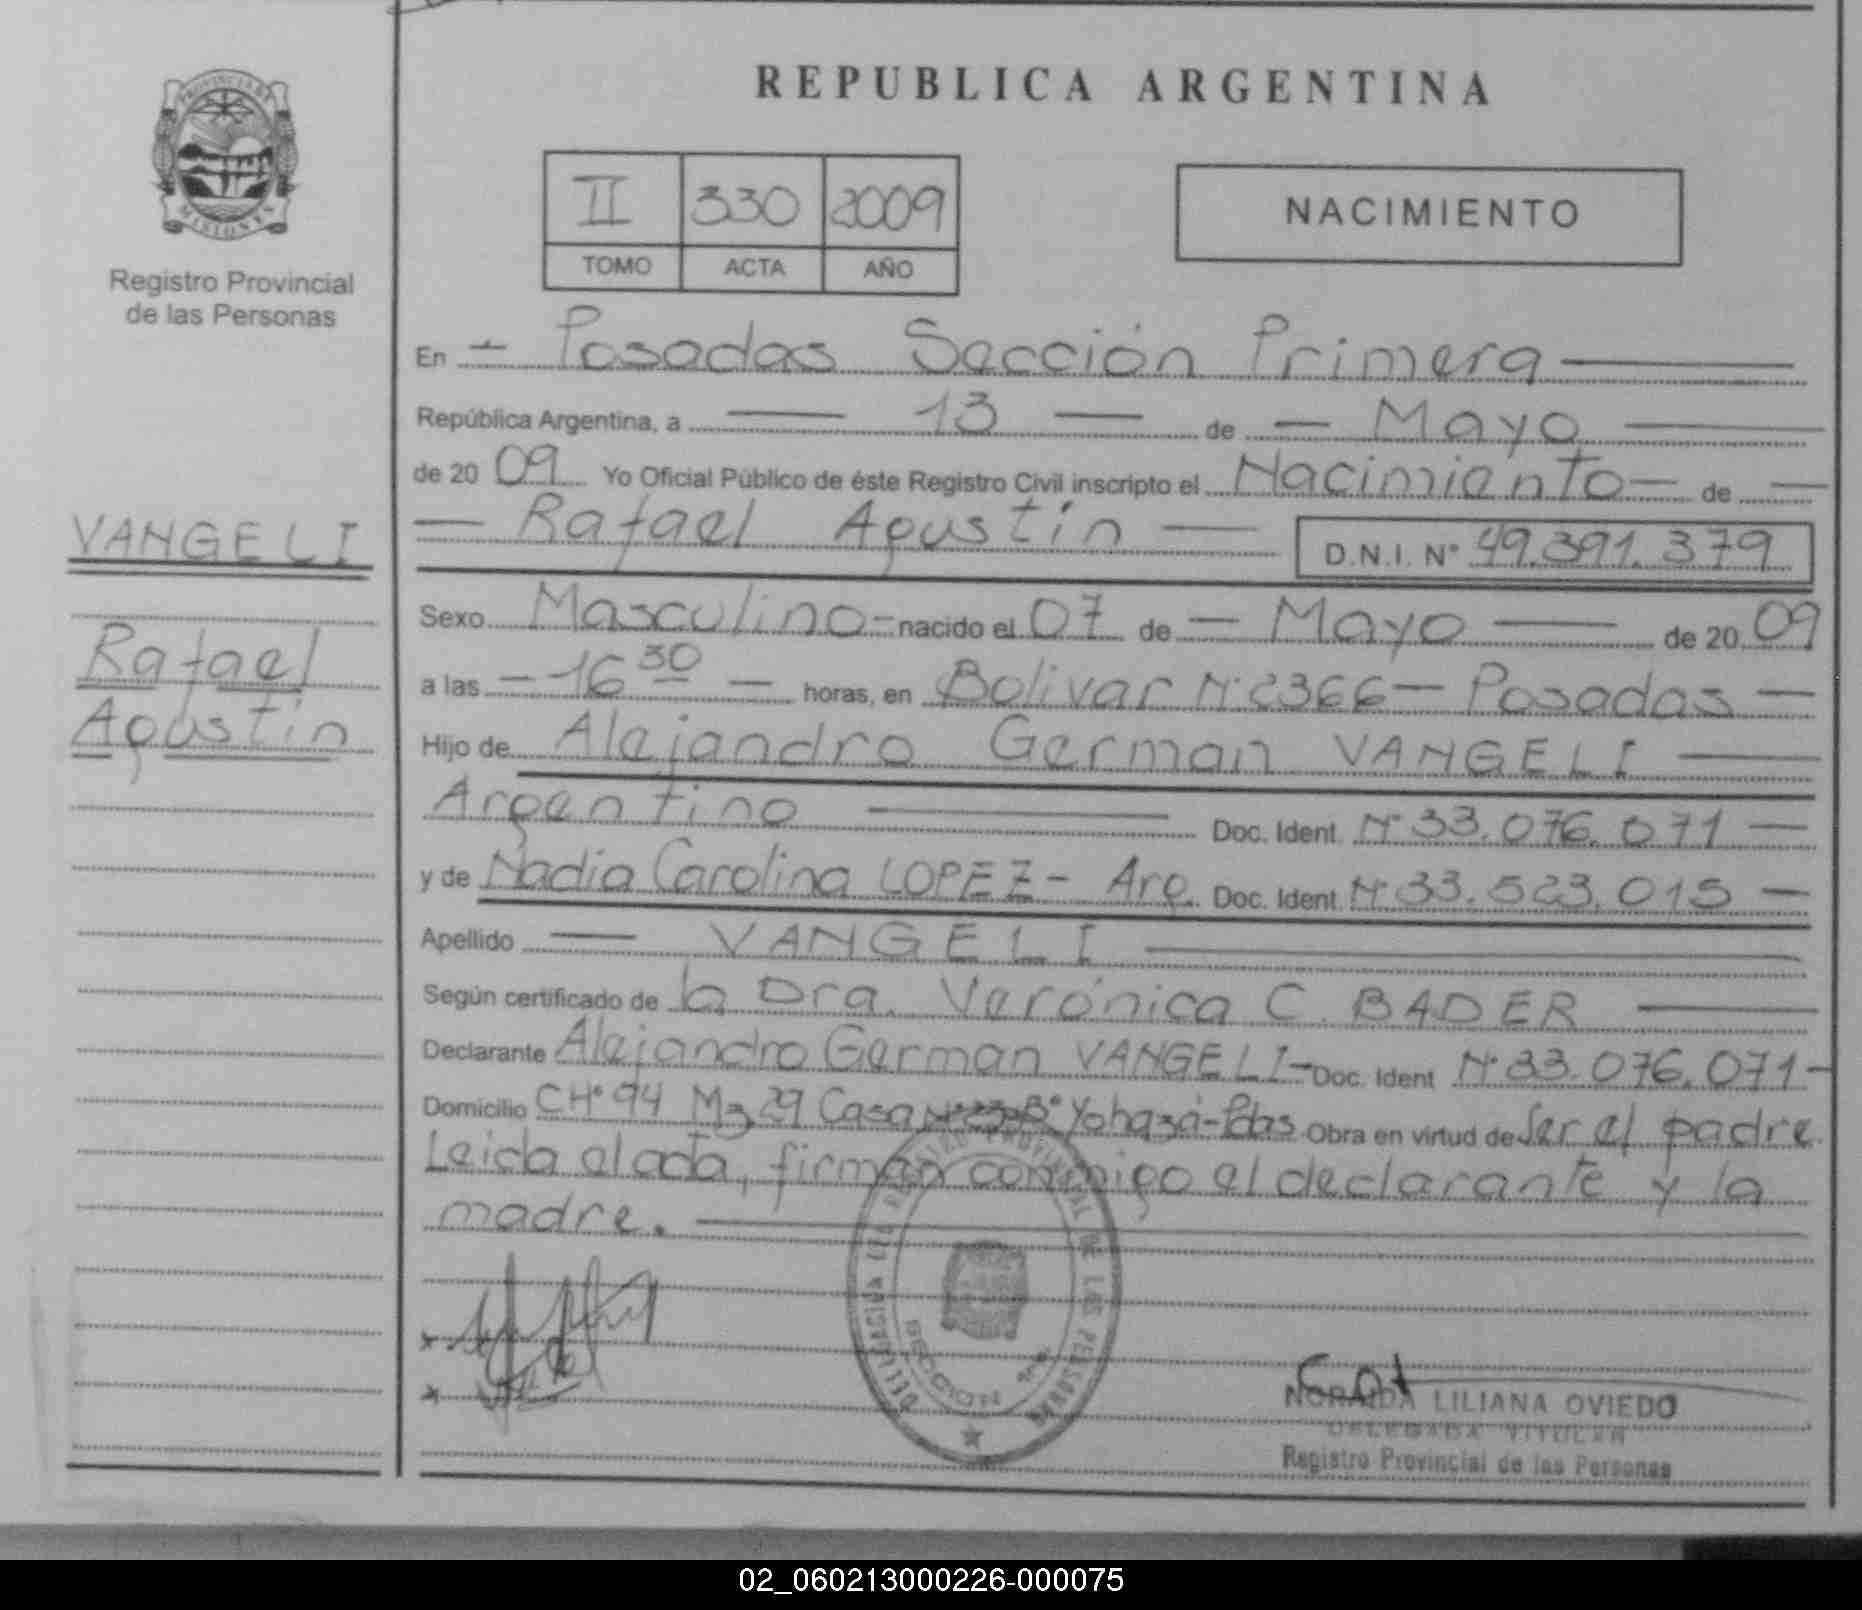 PROVINCIA DE
MISIONES
Registro Provincial
de las Personas
VANGELI
Rafael
Agustin
REPUBLICA ARGENTINA
II 330 2009
TOMO ACTA AÑO
NACIMIENTO
En - Posadas Sección Primera
República Argentina, a 13 de Mayo
de 20 09 Yo Oficial Público de éste Registro Civil inscripto el Nacimiento de
Rafael Agustín D.N.I. N° 49.391.379
Sexo Masculino - nacido el 07 de Mayo de 20 09
a las - 16 30 - horas, en Bolivar N° 2366 - Posadas -
Hijo de Alejandro German VANGELI
Argentino Doc. Ident. N° 33.076.071
y de Nadia Carolina LOPEZ - Arg. Doc. Ident. N° 33.523.015
Apellido VANGELI
Según certificado de la Dra. Verónica C. BADER
Declarante Alejandro German VANGELI - Doc. Ident N° 33.076.071 -
Domicilio CH° 94 Mz 29 Casa B° Yohasá - Pdas Obra en virtud de Ser el padre.
Leida el acta, firman conmigo el declarante y la
madre.
REGISTRO PROVINCIAL DE LAS PERSONAS
SECCION 1ra.
NORAIDA LILIANA OVIEDO
DELEGADA TITULAR
Registro Provincial de las Personas
02_060213000226-000075